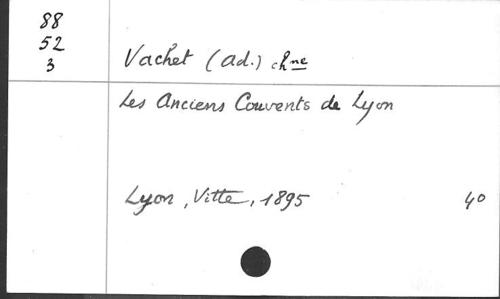 88
52
3
Vachet (Ad.) chne
Les Anciens Couvents de Lyon
Lyon, Vitte, 1895 4º